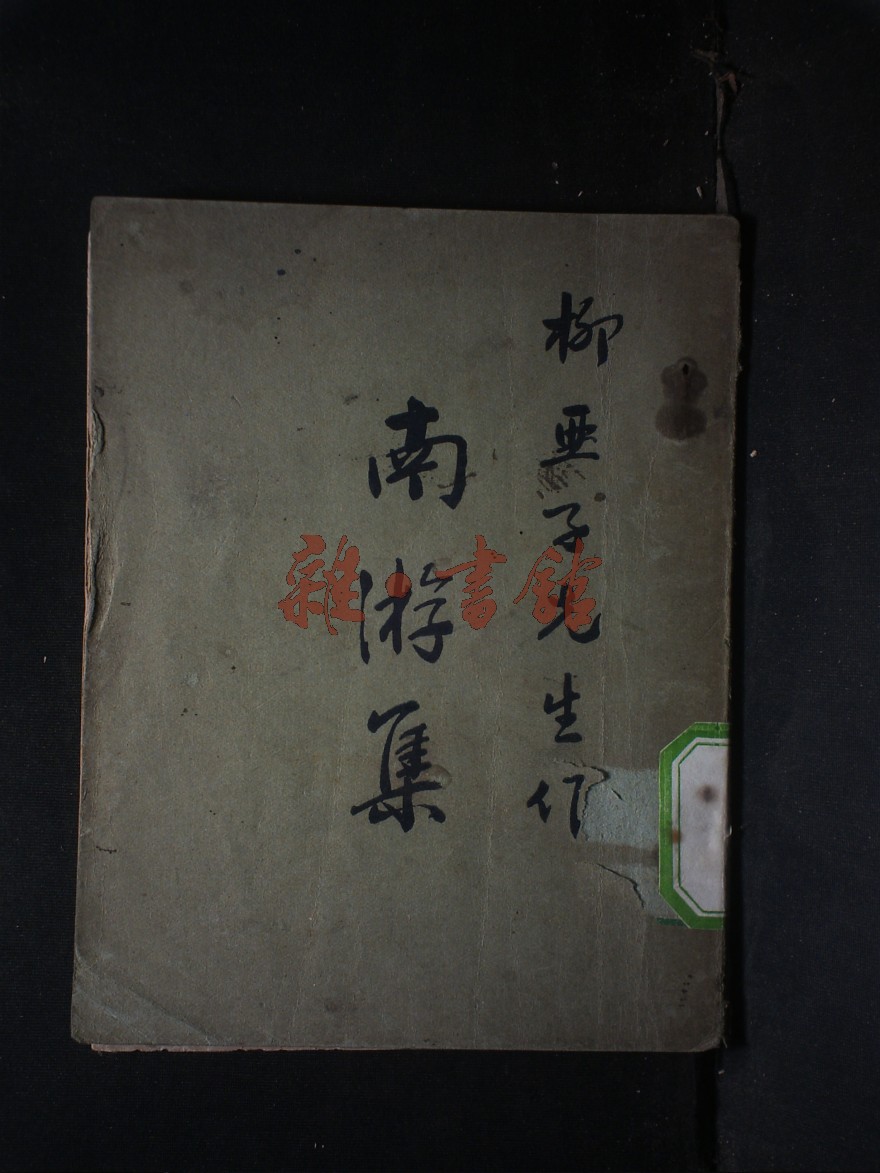 柳亞子先生作
南游集
雜·書館